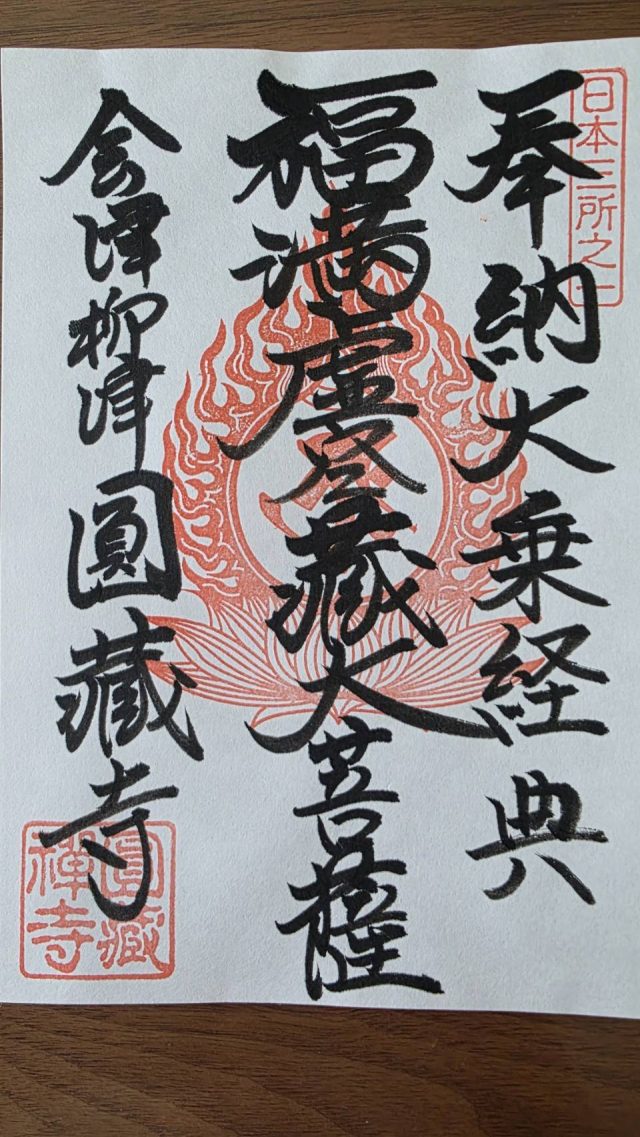 日本三所之一
奉納大乗経典
福満虚空藏大菩薩
会津柳津圓藏寺
圓藏禅寺